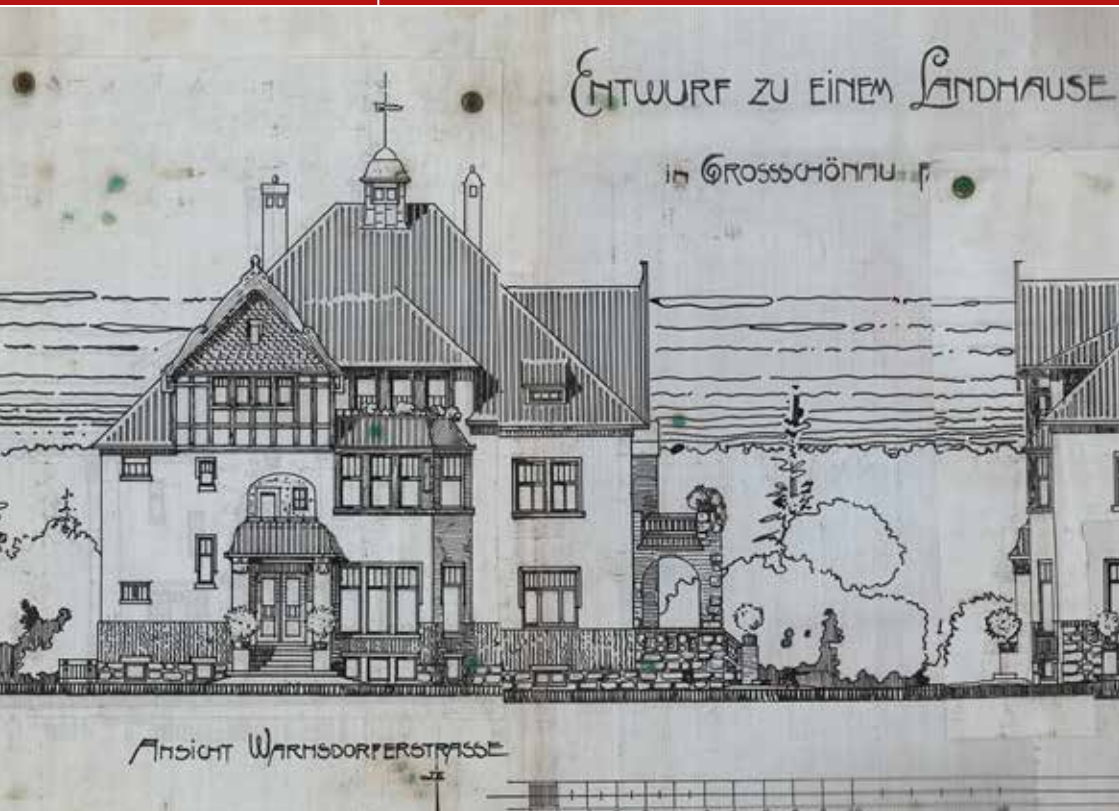 ENTWURF ZU EINEM LANDHAUSE
in GROSSSCHÖNAU
ANSICHT WARNSDORFERSTRASSE